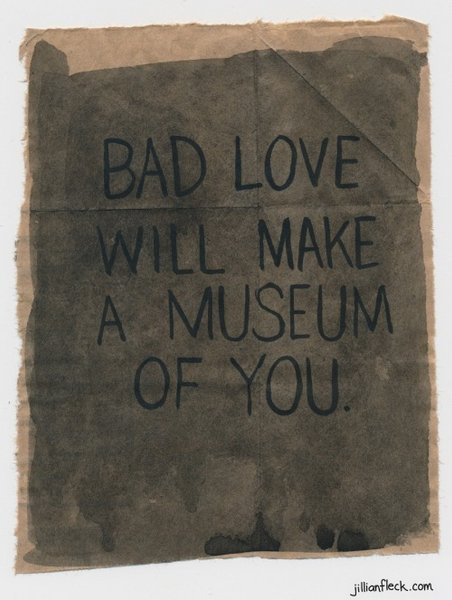 BAD LOVE
WILL MAKE
A MUSEUM
OF YOU.
jillianfleck.com